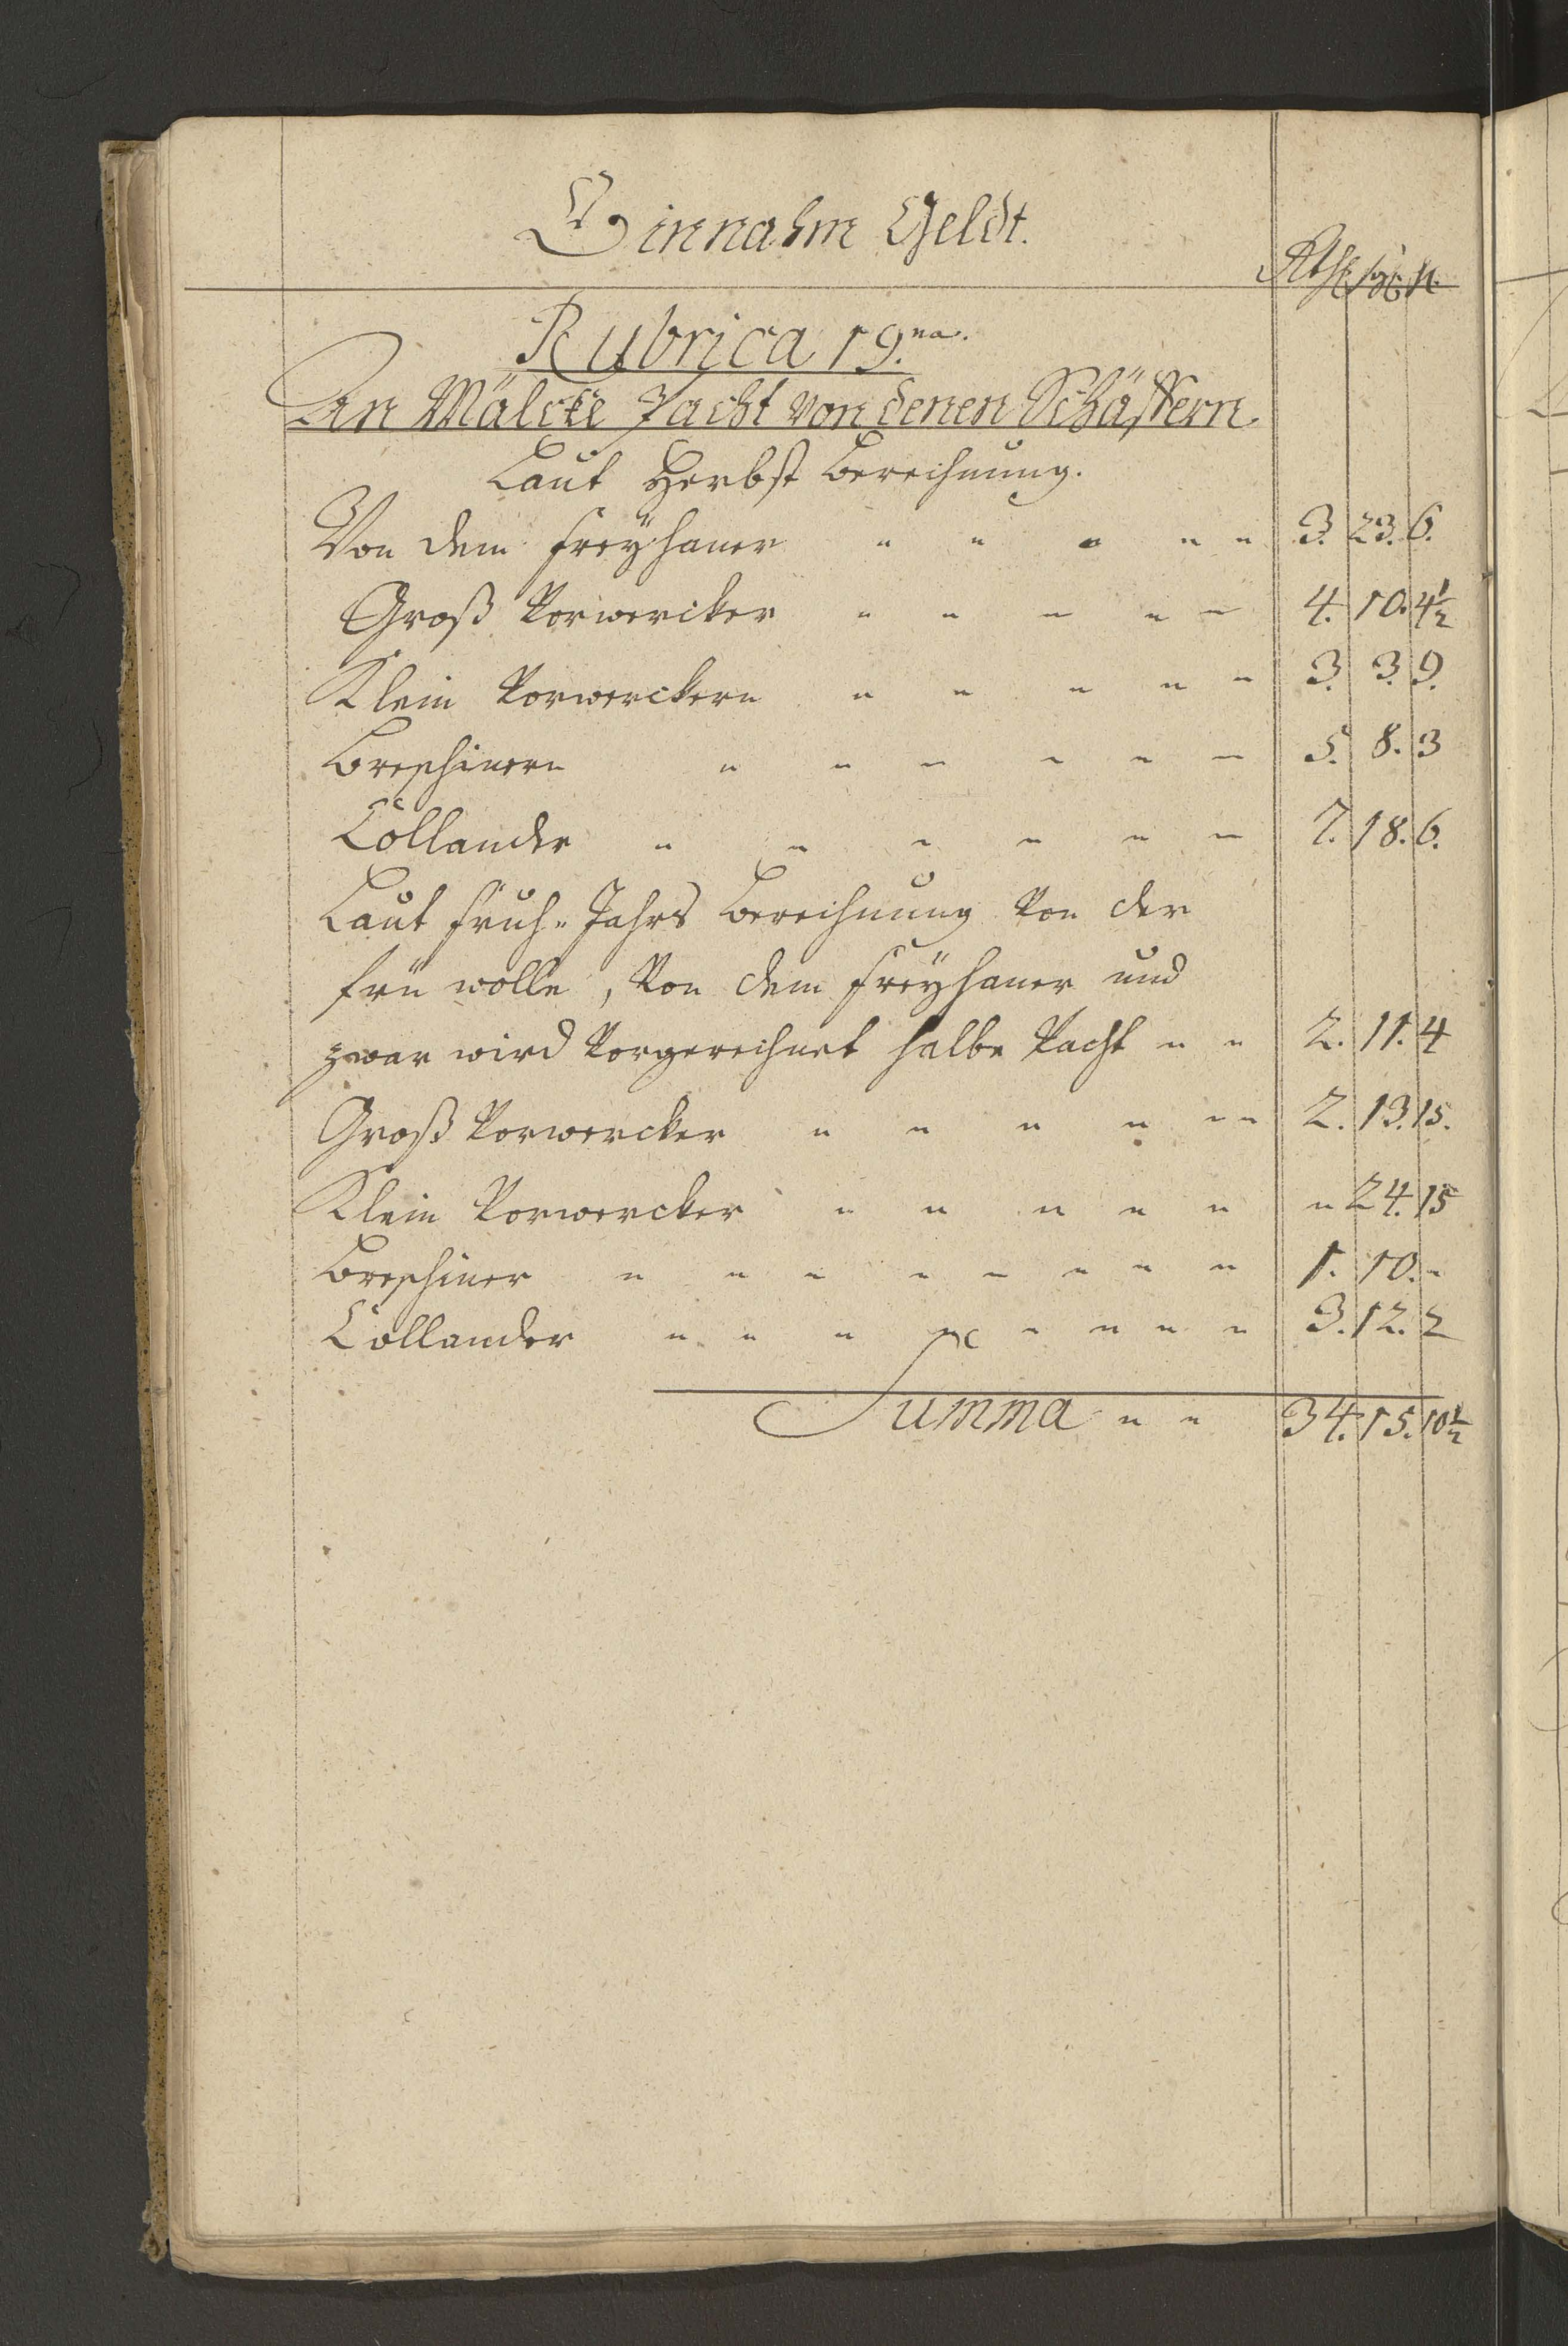 Einnahm Geldt.
Rthl sgl h.
Rubrica 19.na.
An Mälcke Pacht von denen Schäffern.
Laut Herbst Berechnung.
Von dem Freyhaner " " " " " 3. 23. 6.
Groß Vorwercker " " " " " 4. 10. 4½
Klein Vorwerckern " " " " " 3. 3. 9.
Breschinern " " " " " " 5. 8. 3
Collander " " " " " " 7. 18. 6.
Laut Früh-Jahrs Berechnung Von der
frü wolle, Von dem Freyhaner und
zwar wird Vorgerechnet halbe Pacht " " 2. 11. 4
Groß Vorwercker " " " " " " 2. 13. 15.
Klein Vorwercker " " " " " " 24. 15
Breschiner " " " " " " " " 1. 10. "
Collander " " " " " " " " 3. 12. 2
Summa " " 34. 15. 10½